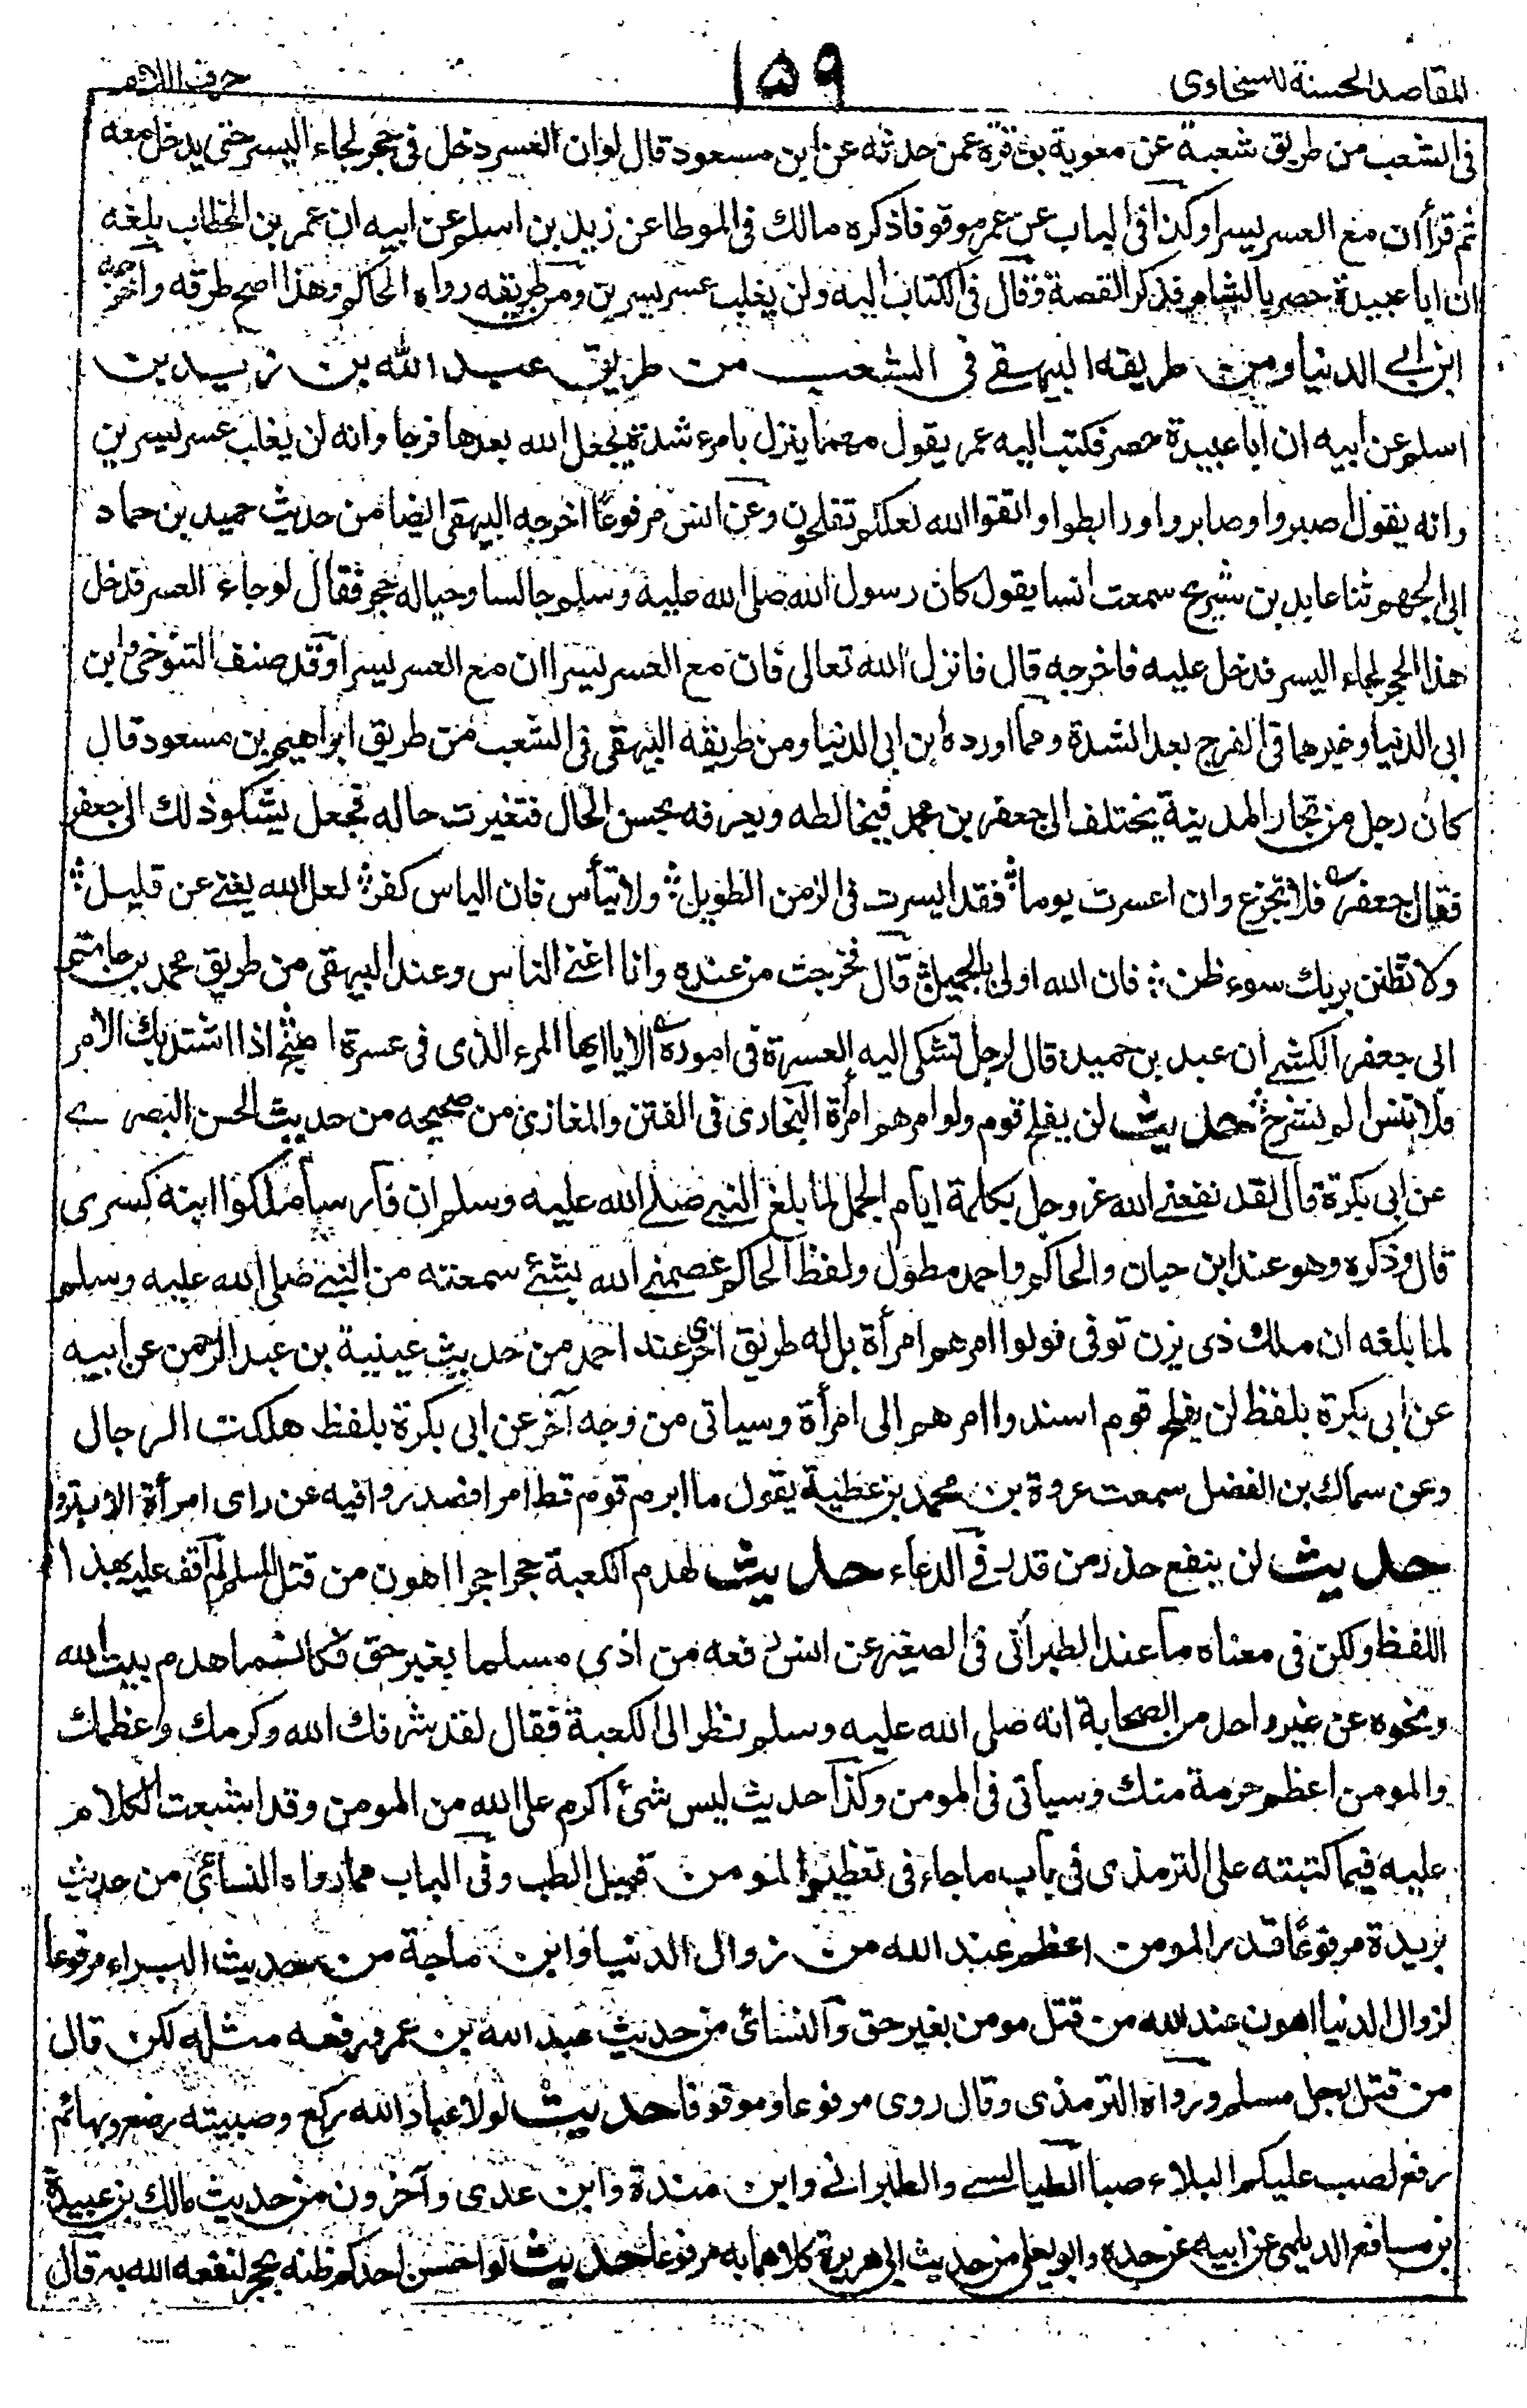 المقاصد الحسنة للسخاوى ١٥٩ حرف اللام
فى الشعب من طريق شعبة عن معوية بن قرة عمن حدثه عن ابن مسعود قال لو ان العسر دخل فى جحر لجاء اليسر حتى يدخل معه
ثم قرأ ان مع العسر يسرا وكذا فى الباب عن عمر موقوفا ذكره مالك فى الموطا عن زيد بن اسلم عن ابيه ان عمر بن الخطاب بلغه
ان ابا عبيدة حصر بالشام فذكر القصة وقال فى الكتاب اليه ولن يغلب عسر يسرين ومن طريقه رواه الحاكم وهذا اصح طرقه واخرجه
ابن ابى الدنيا ومن طريقه البيهقى فى الشعب من طريق عبد الله بن زيد بن
اسلم عن ابيه ان ابا عبيدة حصر فكتب اليه عمر يقول مهما ينزل بامرء شدة يجعل الله بعدها فرجا وانه لن يغلب عسر يسرين
وانه يقول اصبروا وصابروا ورابطوا واتقوا الله لعلكم تفلحون وعن انس مرفوعا اخرجه البيهقى ايضا من حديث حميد بن حماد
ابى الجهم ثنا عايد بن شريح سمعت انسا يقول كان رسول الله صلى الله عليه وسلم جالسا وحياله جحر فقال لو جاء العسر فدخل
هذا الجحر لجاء اليسر فدخل عليه فاخرجه قال فانزل الله تعالى فان مع العسر يسرا ان مع العسر يسرا وقد صنف التنوخى وابن
ابى الدنيا وغيرهما فى الفرج بعد الشدة ومما اورده ابن ابى الدنيا ومن طريقه البيهقى فى الشعب من طريق ابراهيم بن مسعود قال
كان رجل من تجار المدينة يختلف الى جعفر بن محمد فيخالطه ويعرفه بحسن الحال فتغيرت حاله فجعل يشكو ذلك الى جعفر
فقال جعفر فلا تجزع وان اعسرت يوما فقد ايسرت فى الزمن الطويل ولا تيأس فان الياس كفر لعل الله يغنى عن قليل
ولا تظنن بربك سوء ظن فان الله اولى بالجميل قال فخرجت من عنده وانا اغنى الناس وعند البيهقى من طريق محمد بن حاتم
ابى جعفر الكشى ان عبد بن حميد قال لرجل تشكى اليه العسرة فى اموره الا يا ايها المرء الذى فى عسرة اصبح اذا اشتد بك الامر
فلا تنس الم نشرح حديث لن يفلح قوم ولوا امرهم امرأة البخارى فى الفتن والمغازى من صحيحه من حديث الحسن البصرى
عن ابى بكرة قال لقد نفعنى الله عز وجل بكلمة ايام الجمل لما بلغ النبى صلى الله عليه وسلم ان فارسا ملكوا ابنة كسرى
قال وذكره وهو عند ابن حبان والحاكم واحمد مطول ولفظ الحاكم عصمنى الله بشئ سمعته من النبى صلى الله عليه وسلم
لما بلغه ان ملك ذى يزن توفى فولوا امرهم امرأة بل له طريق اخرى عند احمد من حديث عيينة بن عبد الرحمن عن ابيه
عن ابى بكرة بلفظ لن يفلح قوم اسندوا امرهم الى امرأة وسياتى من وجه آخر عن ابى بكرة بلفظ هلكت الرجال
وعن سماك بن الفضل سمعت عروة بن محمد بن عطية يقول ما ابرم قوم قط امرا فصدروا فيه عن راى امرأة الا تبروا
حديث لن ينفع حذر من قدر فى الدعاء حديث لهدم الكعبة حجرا حجرا اهون من قتل المسلم لم اقف عليه بهذا
اللفظ ولكن فى معناه ما عند الطبرانى فى الصغير عن انس رفعه من اذى مسلما بغير حق فكانما هدم بيت الله
ونحوه عن غير واحد من الصحابة انه صلى الله عليه وسلم نظر الى الكعبة فقال لقد شرفك الله وكرمك وعظمك
والمومن اعظم حرمة منك وسياتى فى المومن وكذا حديث ليس شئ اكرم على الله من المومن وقد اشبعت الكلام
عليه فيما كتبته على الترمذى فى باب ماجاء فى تعظيم المومن قبيل الطب وفى الباب مما رواه النسائى من حديث
بريدة مرفوعا قدر المومن اعظم عند الله من زوال الدنيا وابن ماجة من حديث البراء مرفوعا
لزوال الدنيا اهون عند الله من قتل مومن بغير حق والنسائى من حديث عبد الله بن عمرو رفعه مثله لكن قال
من قتل رجل مسلم ورواه الترمذى وقال روى مرفوعا وموقوفا حديث لولا عباد الله ركع وصبيته رضع وبهائم
رتع لصب عليكم البلاء صبا الطيالسى والطبرانى وابن مندة وابن عدى وآخرون من حديث مالك بن عبيدة
بن مسافع الديلمى عن ابيه عن جده وابو يعلى من حديث ابى هريرة كلاهما به مرفوعا حديث لو احسن احدكم ظنه بحجر لنفعه الله به قال